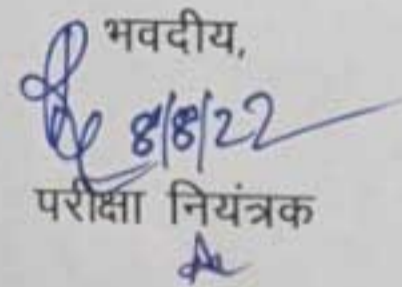 भवदीय,
8/8/22
परीक्षा नियंत्रक